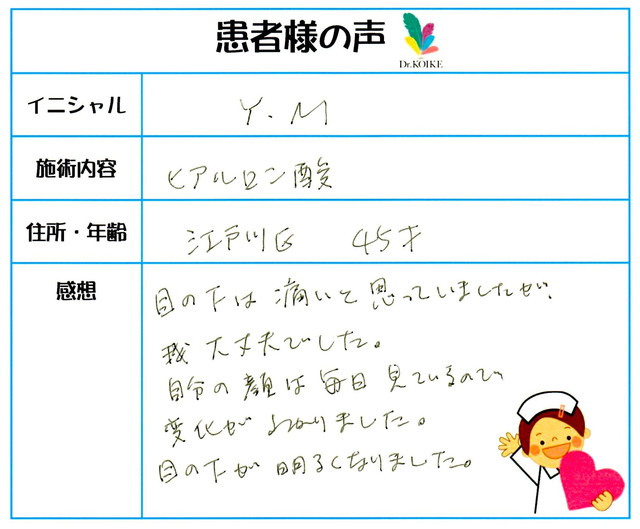 患者様の声
Dr.KOIKE
イニシャル
Y.M
施術内容
ヒアルロン酸
住所・年齢
江戸川区 45才
感想
目の下は痛いと思っていましたが、
大丈夫でした。
自分の顔は毎日見ているので
変化がわかりました。
目の下が明るくなりました。